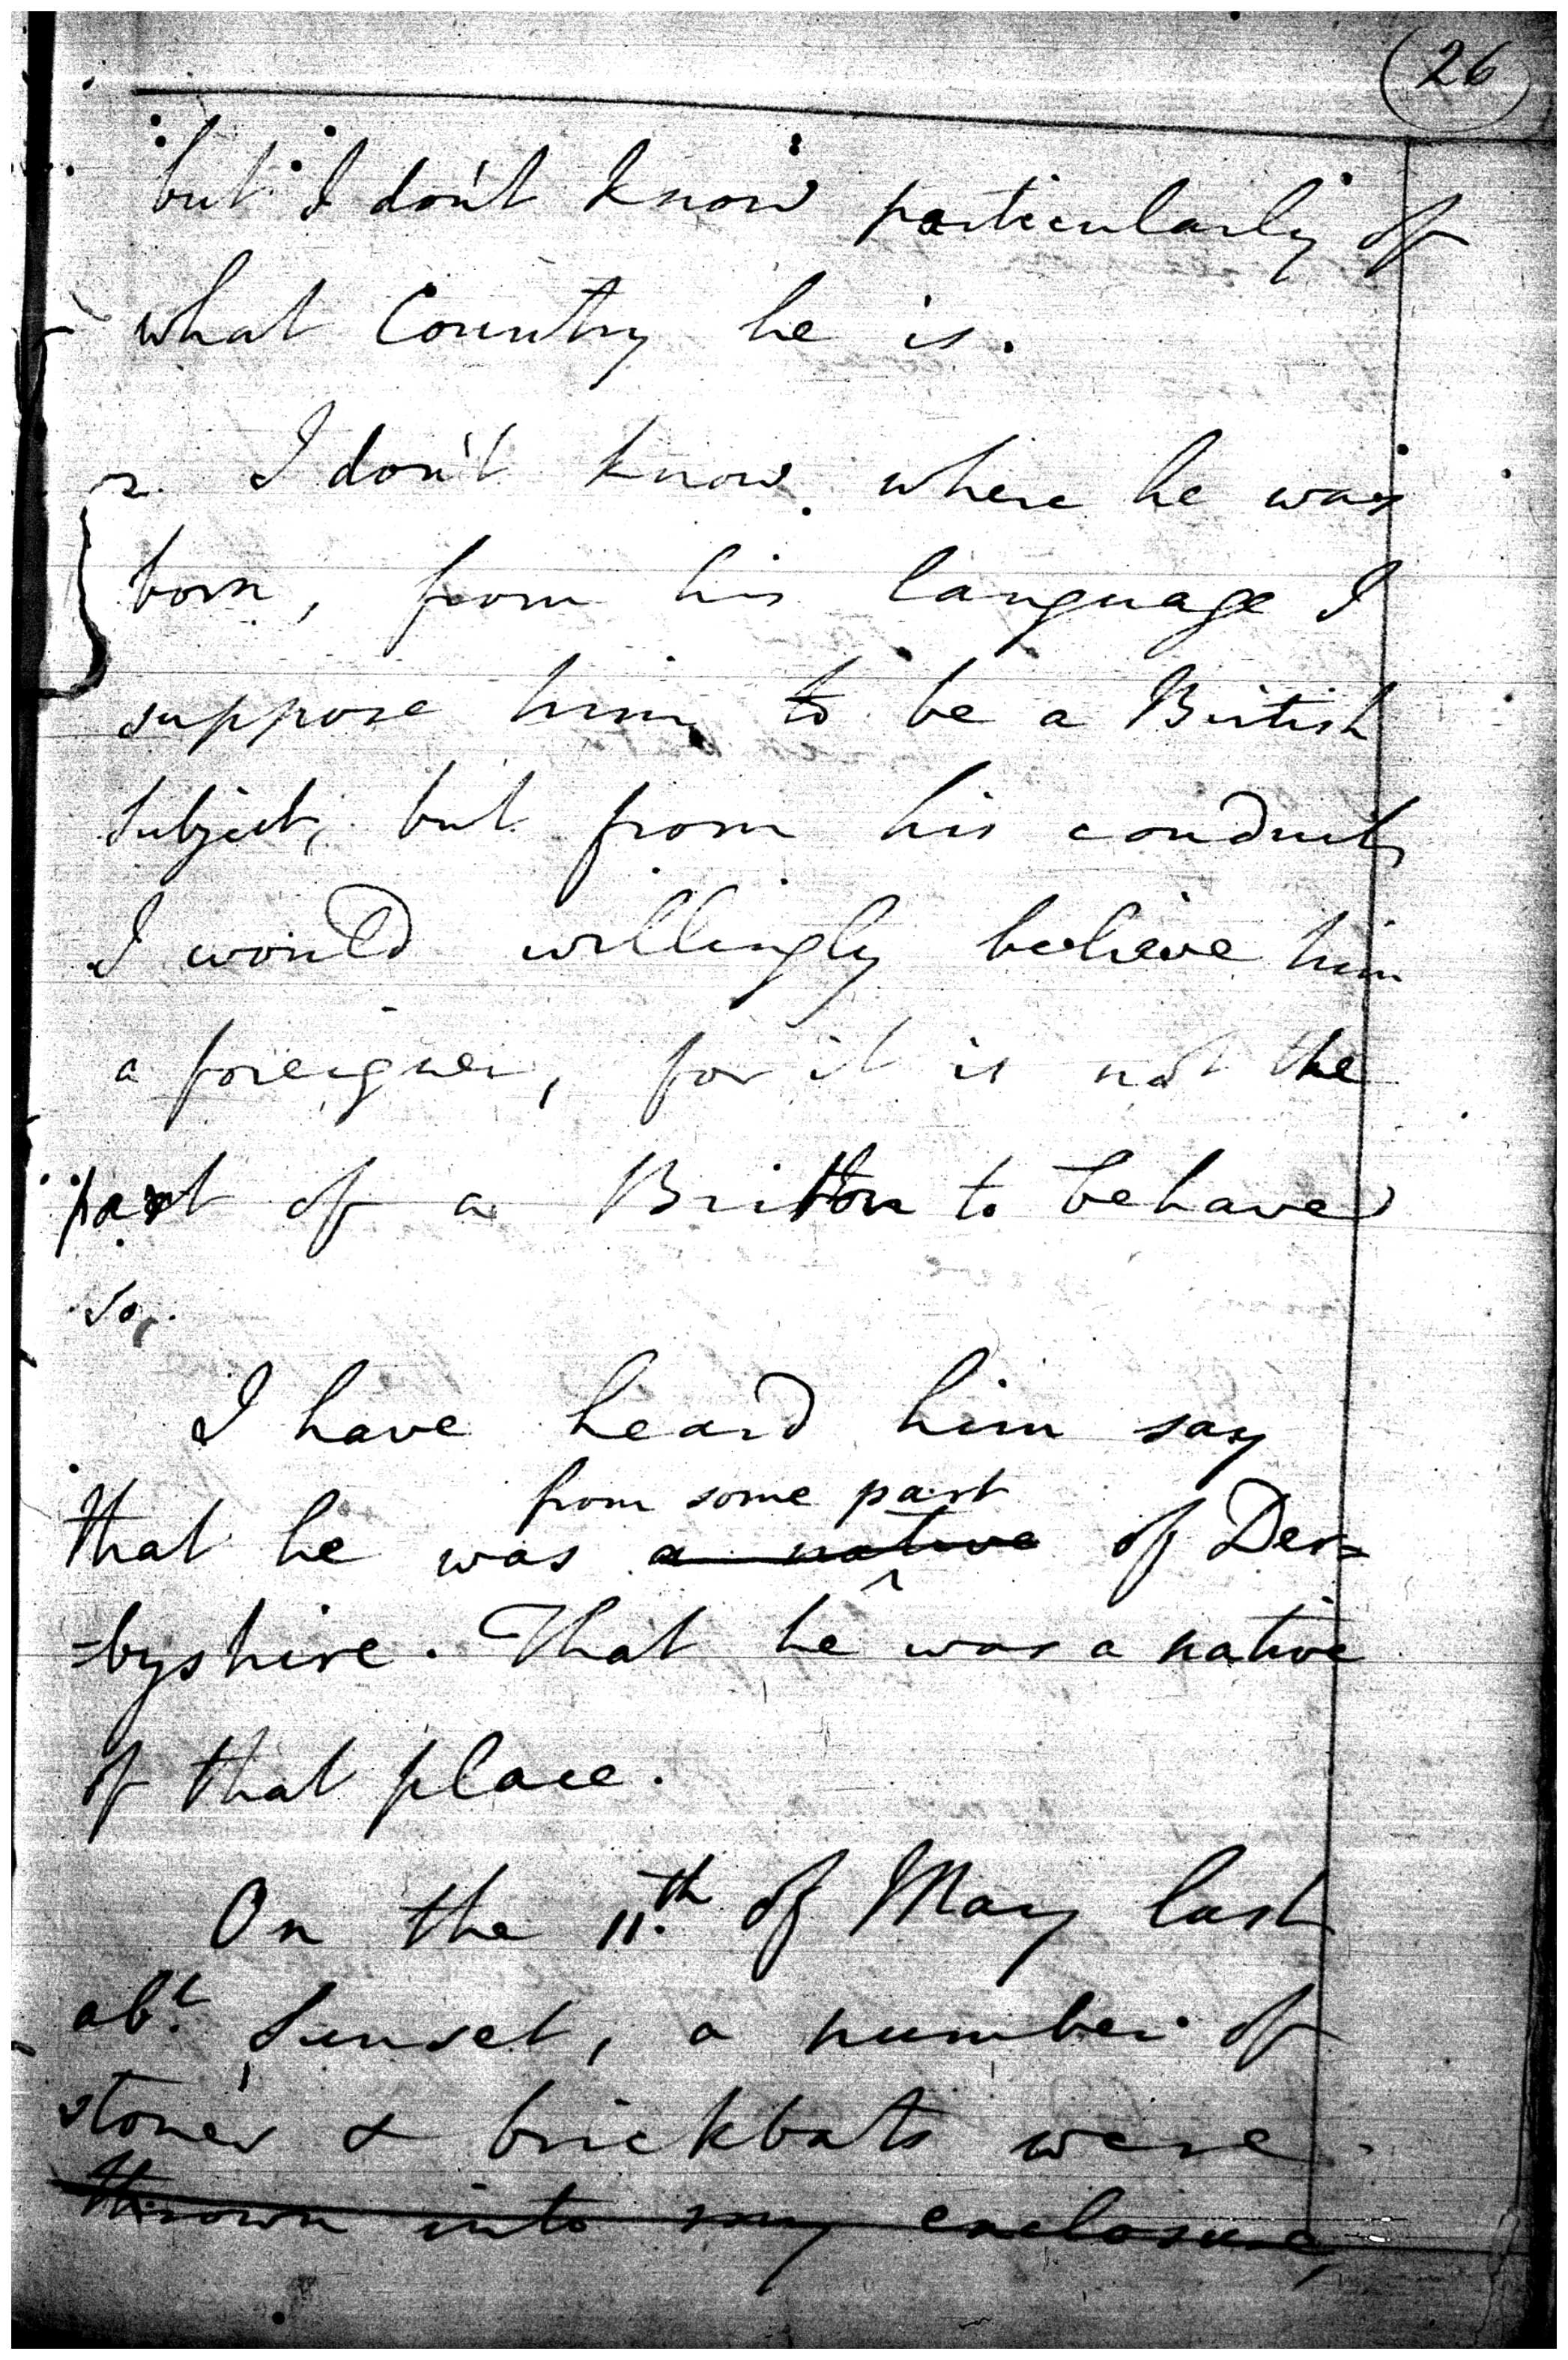 26
but I don't know particularly of
what Country he is.
2. I don't know where he was
born, from his language I
suppose him to be a British
Subject, but from his conduct
I would willingly believe him
a foreigner, for it is not the
part of a Britton to behave
so,
I have heard him say
from some part
that he was a native of Der=
=byshire. That he was a native
of that place.
On the 11.th of May last
abt. Sunset, a number of
stones & brickbats were
thrown into my enclosure,